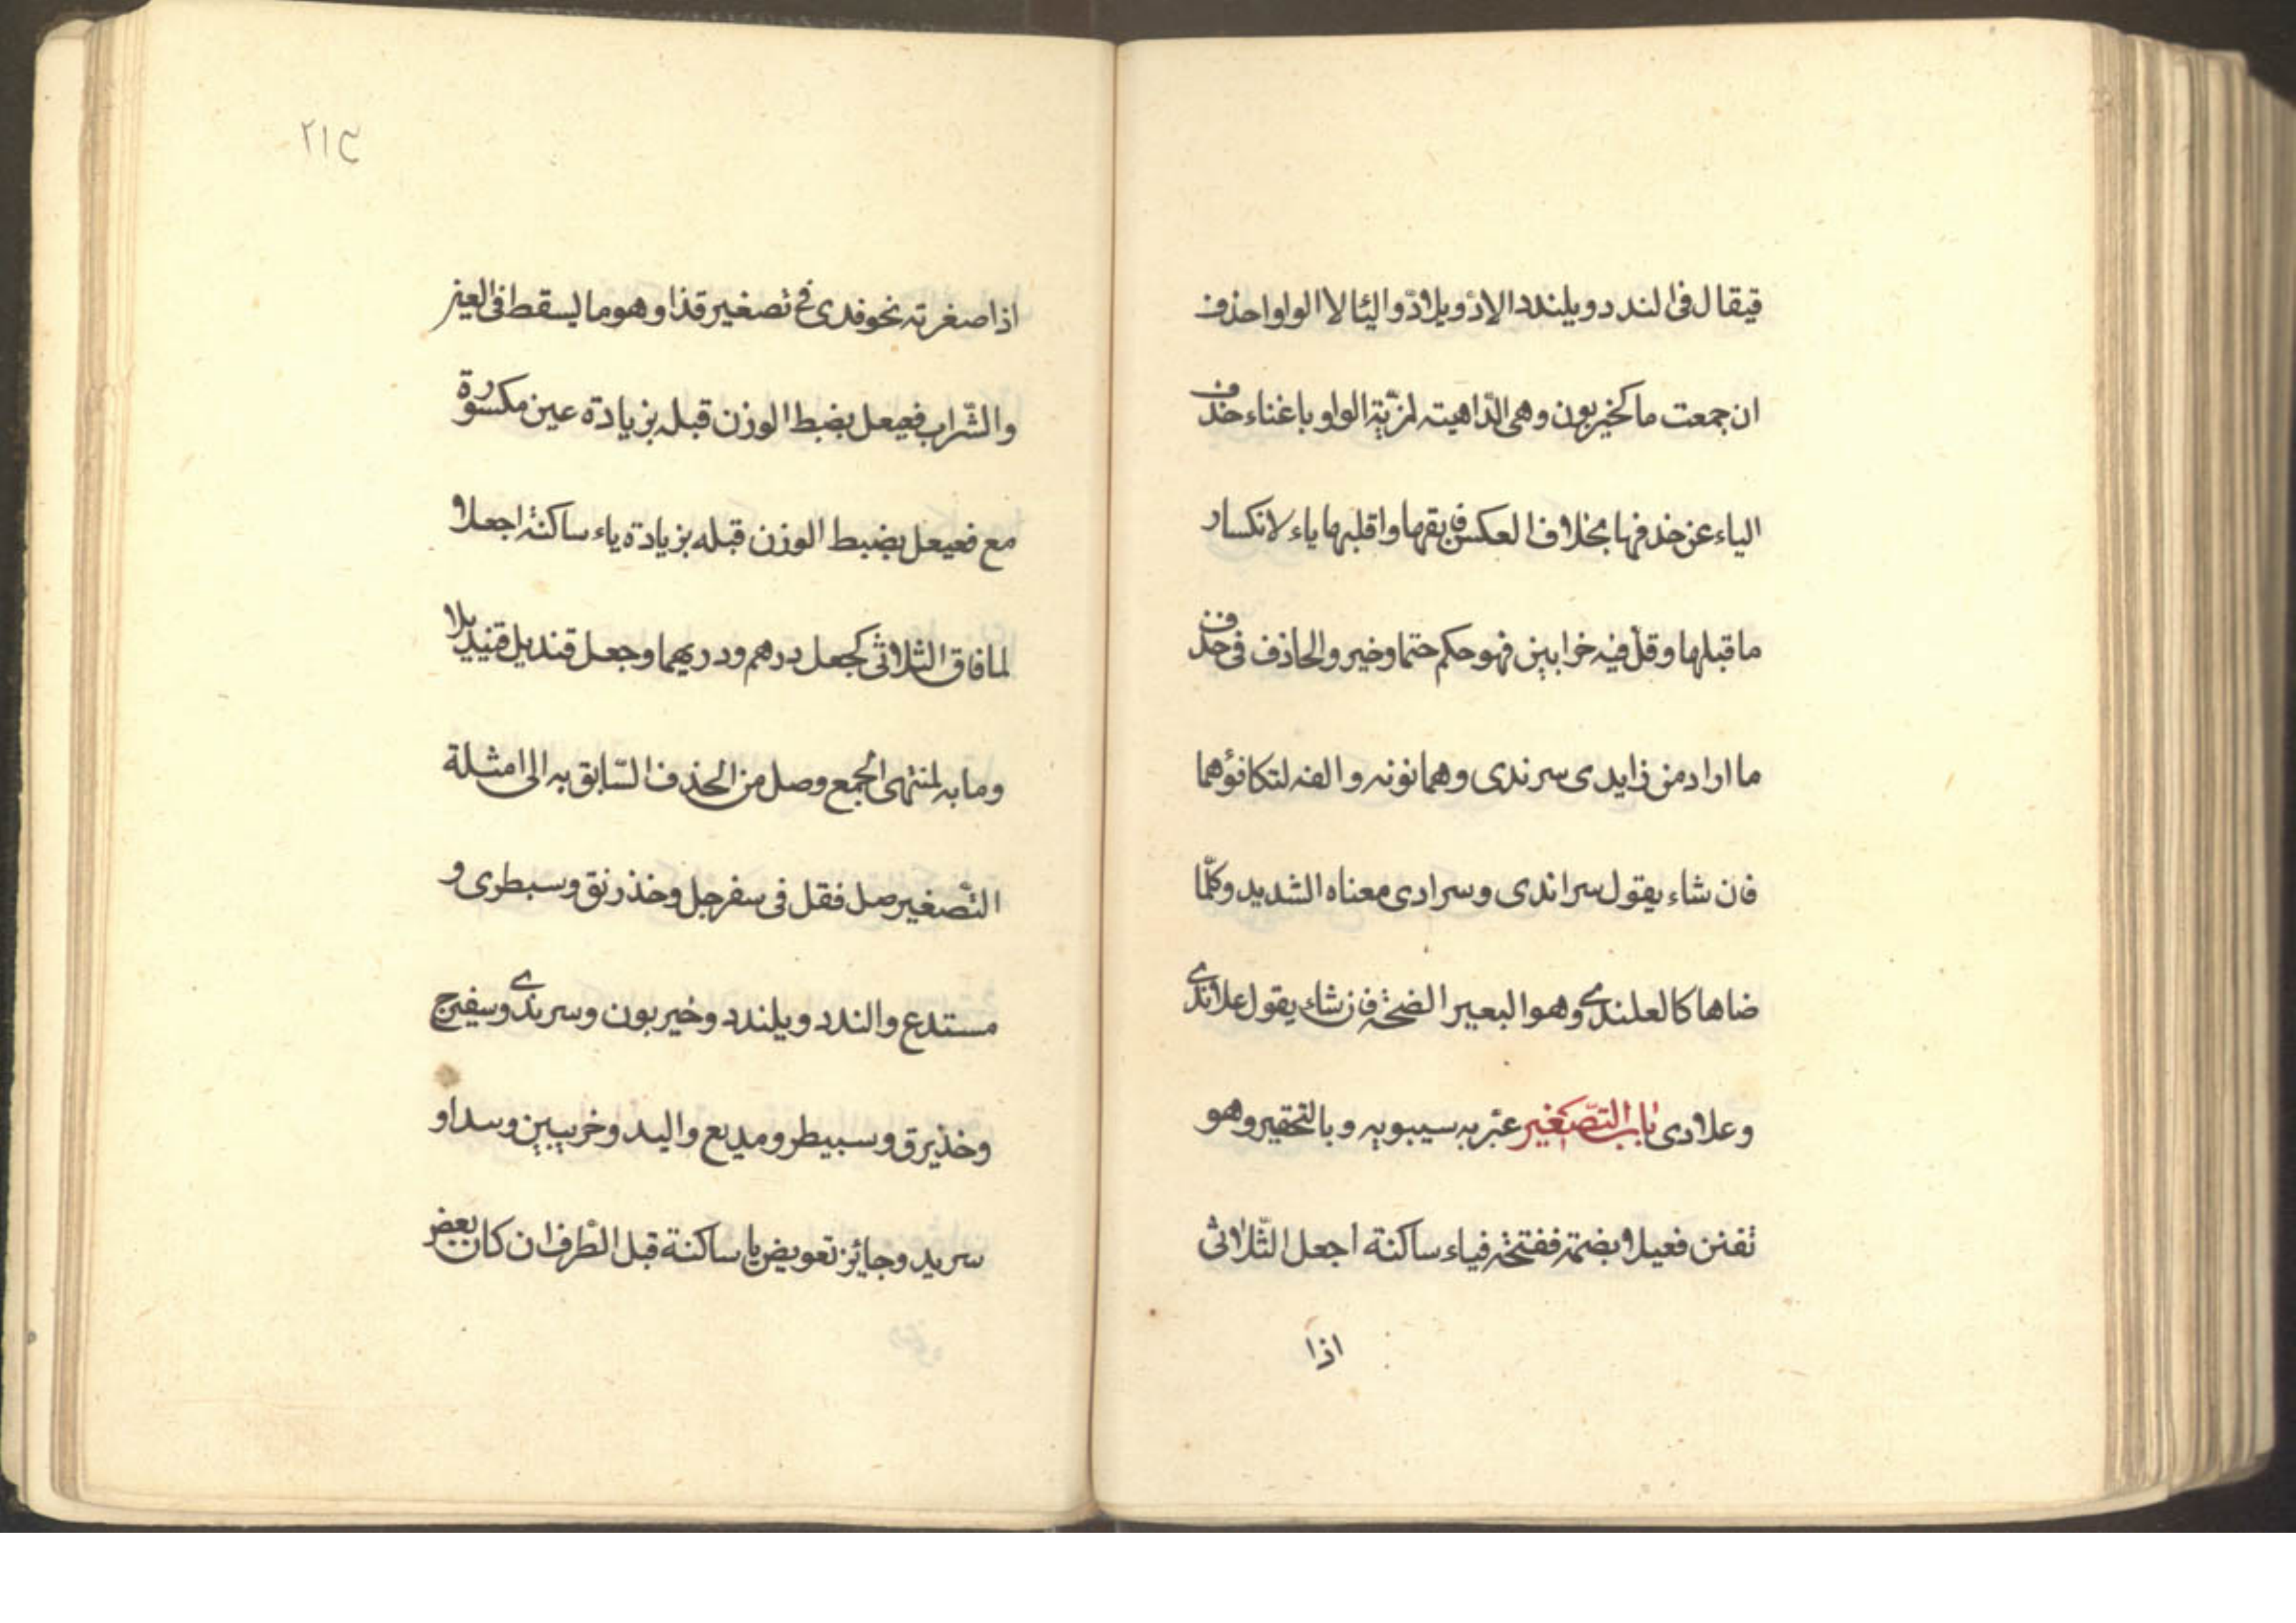 فيقال فى الندد ويلندد الادّ ويلادّ واليا لا الواو احذف
ان جمعت ما كخيربون وهى الدّاهيته لمزيّة الواو باغناء حذف
الياء عن حذفها بخلاف العكس فابقها واقلبها ياء لانكسار
ما قبلها وقل فيه خرابين فهو حكم حتما وخير والحاذف فى حذف
ما اراد من زايدى سرندى وهما نونه والفه لتكافؤهما
فان شاء يقول سراندى وسرادى معناه الشديد وكلّما
ضاها كالعلندى وهو البعير الضخم فان شاء يقول علاندى
وعلادى باب التّصغير عبّر به سيبويه وبالتحقير وهو
تفنن فعيلا بضمة ففتحة فياء ساكنة اجعل الثّلاثى
اذا
٢١٣
اذا صغرته نحو قدى فى تصغير قذا وهو ما يسقط فى العين
والشّراب فعيعل بضبط الوزن قبله بزيادة عين مكسورة
مع فعيعل بضبط الوزن قبله بزيادة ياء ساكنة اجعلا
لما فاق الثلاثى كجعل درهم ودريهما وجعل قنديل قنيديلا
وما به لمنتهى الجمع وصل من الحذف السّابق به الى امثلة
التّصغير صل فقل فى سفرجل وخذرنق وسبطرى و
مستدع والندد ويلندد وخيربون وسرندى وسفيرج
وخذيرق وسبيطر ومديع واليد وخريبين وسداو
سريد وجايز تعويض يا ساكنة قبل الطّرف ان كان بعض